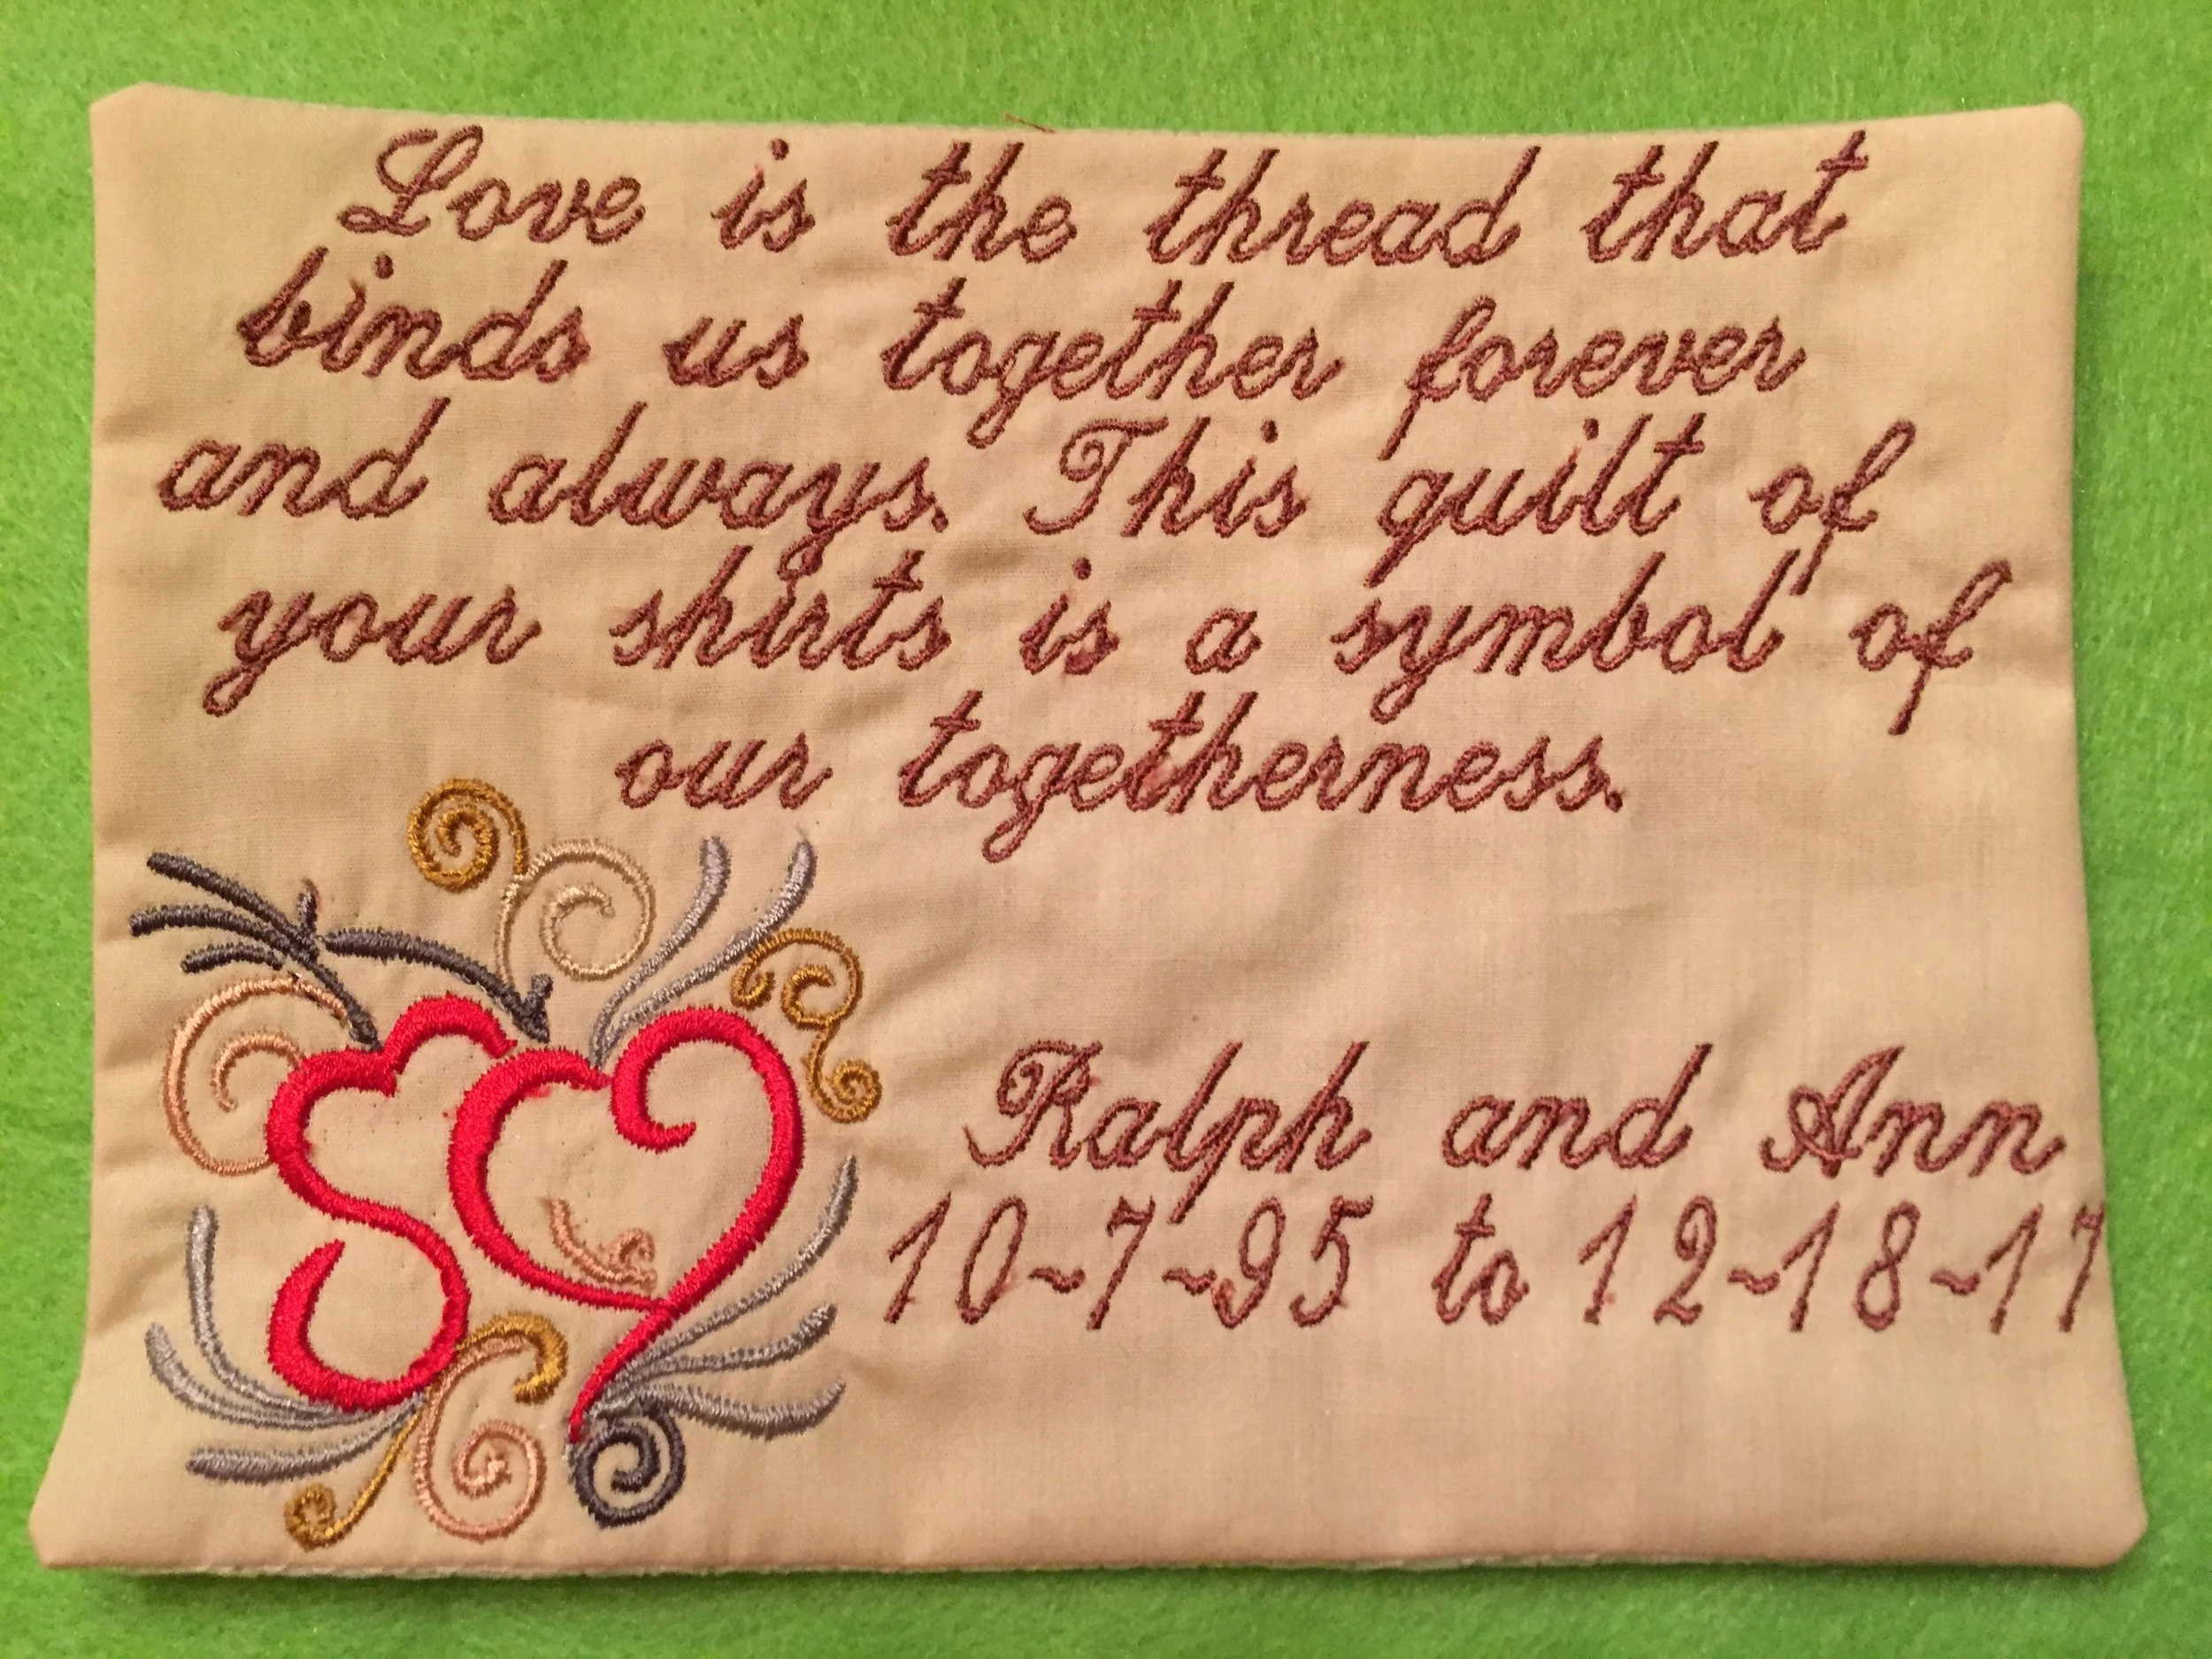 Love is the thread that
binds us together forever
and always. This quilt of
your shirts is a symbol of
our togetherness.
Ralph and Ann
10~7~95 to 12~18~17